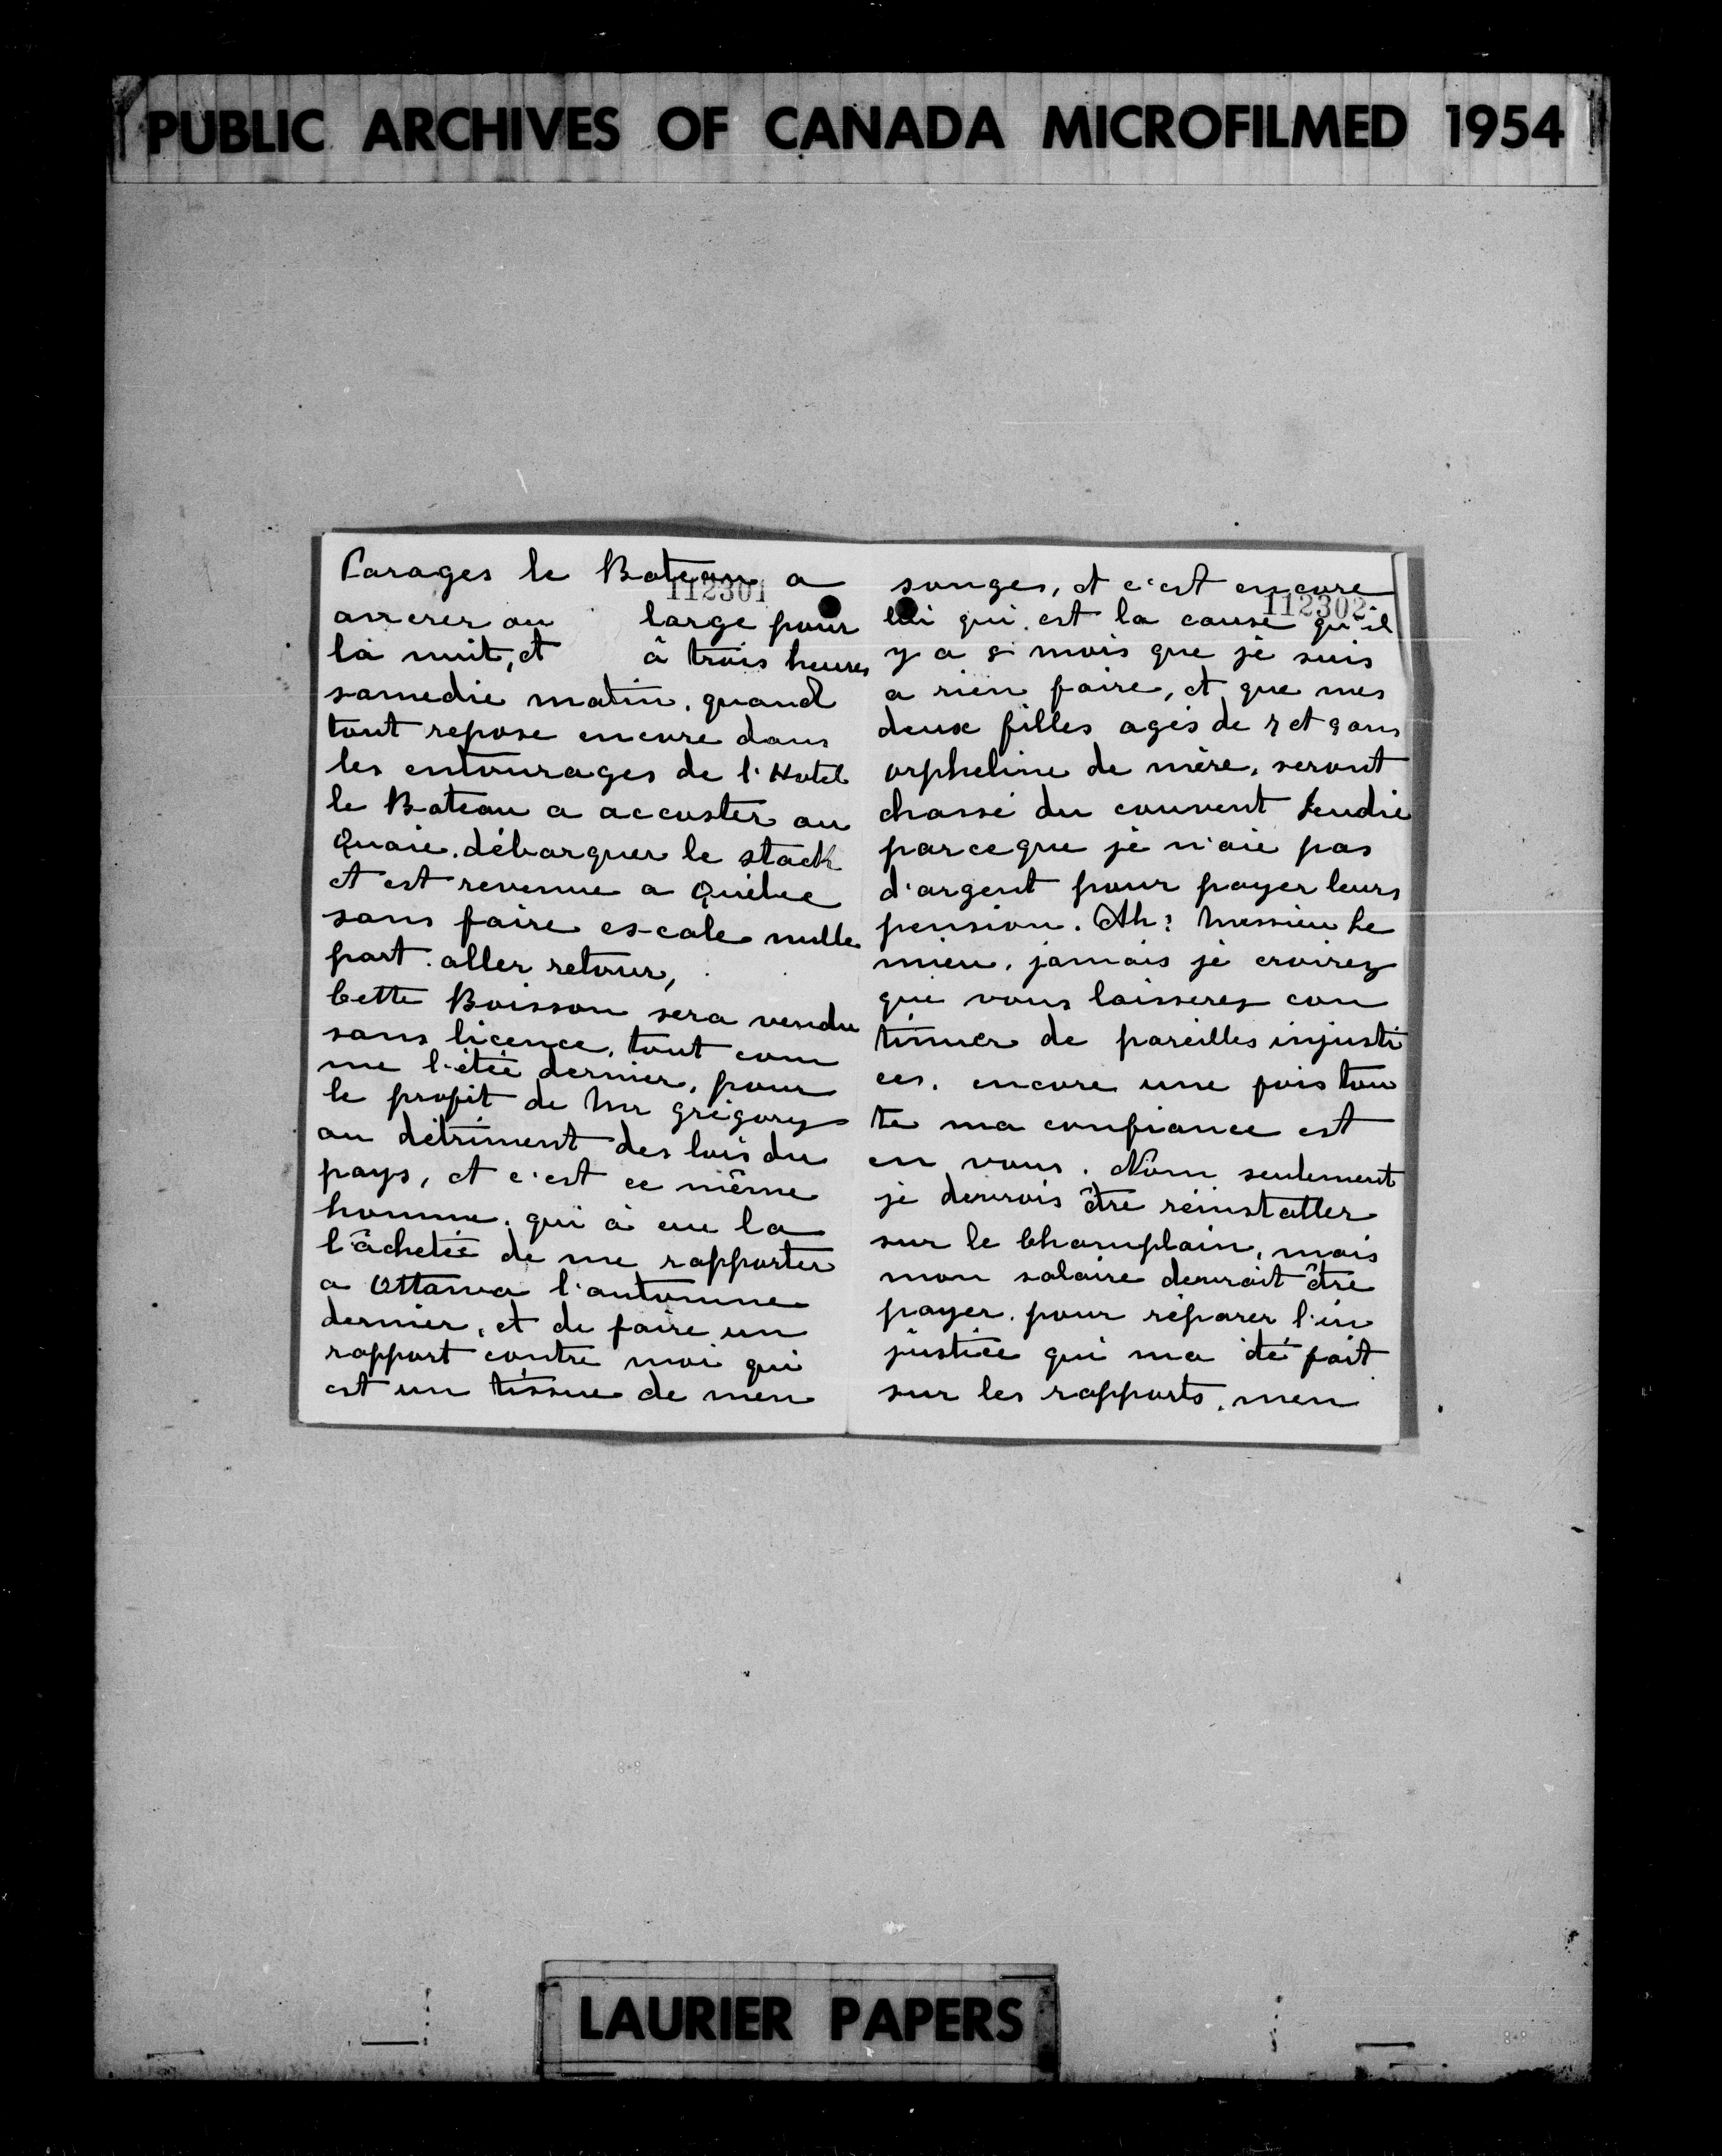 PUBLIC ARCHIVES OF CANADA MICROFILMED 1954
Parages le Bateau a
112301
ancrer au large pour
la nuit, et à trois heures
samedie matin, quand
tout repose encore dans
les entourages de l'Hotel
le Bateau a accoster au
Quaie. débarquer le stock
et est revenue a Québec
sans faire escale nulle
part. aller retour,
Cette Boisson sera vendu
sans licence, tout com
me l'étée dernier, pour
le profit de Mr Grégory
au détriment des lois du
pays, et c'est ce même
homme, qui à eue la
l'âchetée de me rapporter
a Ottawa l'automne
dernier, et de faire un
rapport contre moi qui
est un tissue de men
songes, et c'est encore
112302
lui qui est la cause qu'il
y a 5 mois que je suis
a rien faire, et que mes
deux filles agés de 7 et 9 ans
orpheline de mère, seront
chassé du couvent Jeudie
parceque je n'aie pas
d'argent pour payer leurs
pension. Ah! Messieu Le
mieu, jamais je croirez
que vous laisserez con
tinuer de pareilles injusti
ces. encore une fois tou
te ma confiance est
en vous. Nom seulement
je devrois être réinstaller
sur le Champlain, mais
mon salaire devrait être
payer. pour réparer l'in
justice qui ma été fait
sur les rapports. men
LAURIER PAPERS